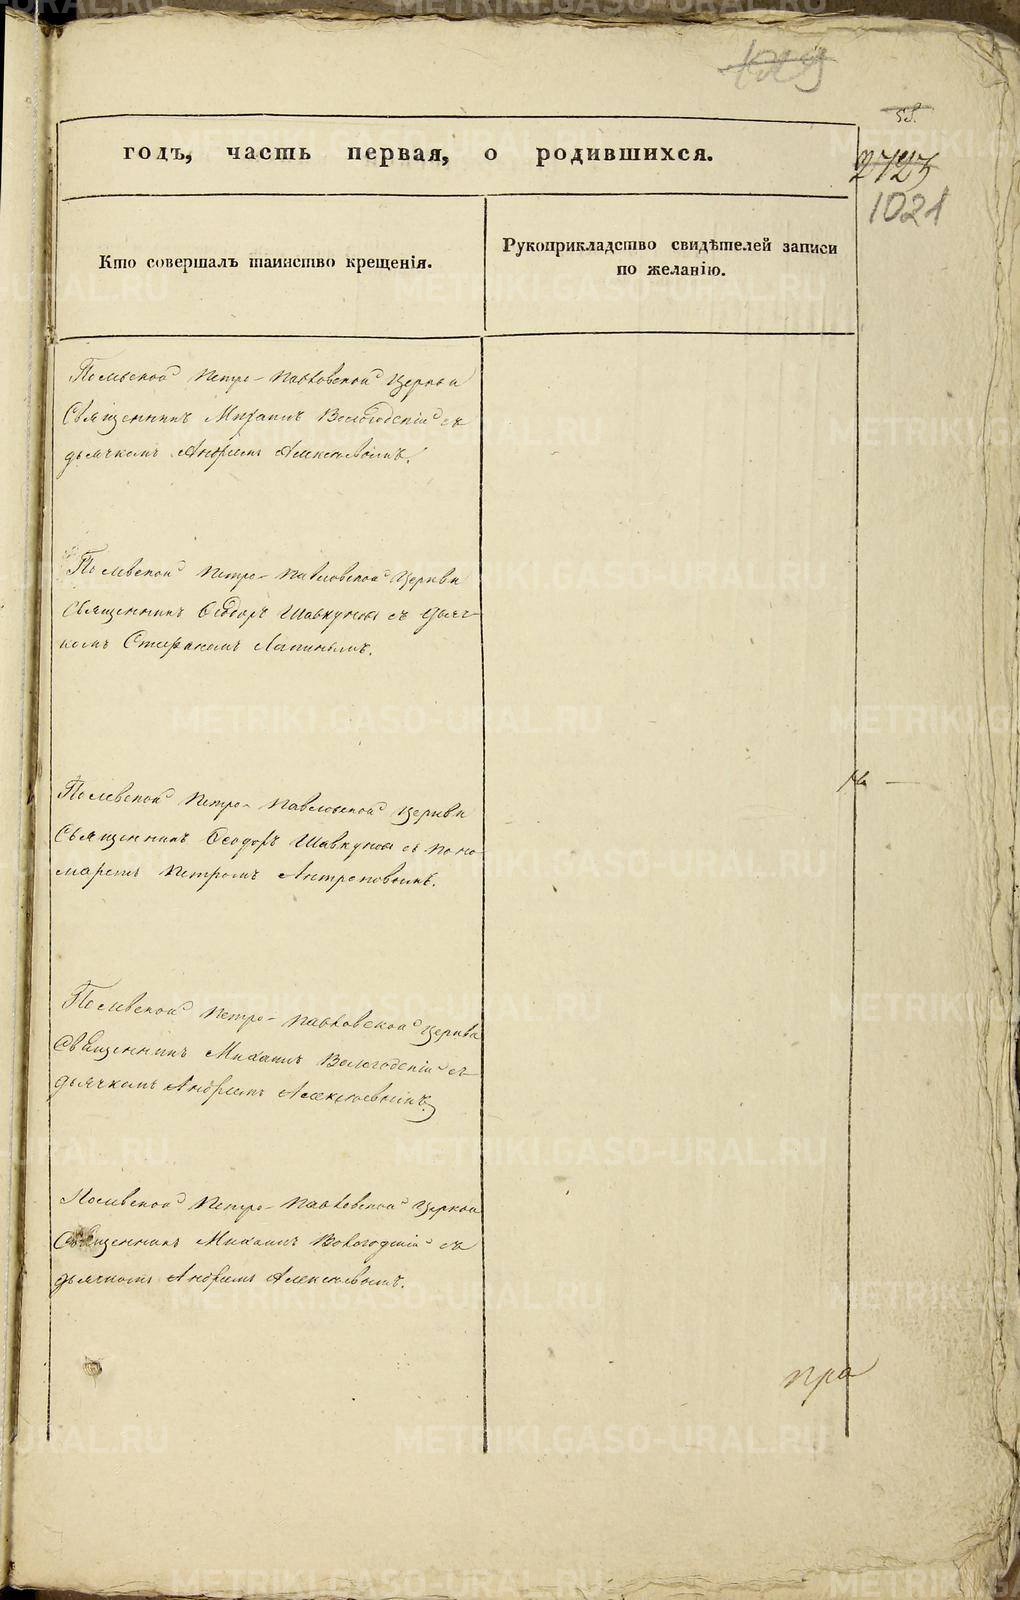 1029
58.
годъ, часть первая, о родившихся.
2723
1021
Кто совершалъ таинство крещенія.
Рукоприкладство свидѣтелей записи
по желанію.
Полевской Петро-Павловской Церкви
Священникъ Михаилъ Вологодскій съ
дьячкомъ Андреемъ Алексѣевымъ.
Полевской Петро-Павловской Церкви
Священникъ Ѳеодоръ Шавкуновъ съ дьяч-
комъ Стефаномъ Лапинымъ.
Полевской Петро-Павловской Церкви
Священникъ Ѳеодоръ Шавкуновъ съ поно-
маремъ Петромъ Антроповымъ.
Полевской Петро-Павловской Церкви
Священникъ Михаилъ Вологодскій съ
дьячкомъ Андреемъ Алексѣевымъ.
Полевской Петро-Павловской Церкви
Священникъ Михаилъ Вологодскій съ
дьячкомъ Андреемъ Алексѣевымъ.
пра
METRIKI.GASO-URAL.RU